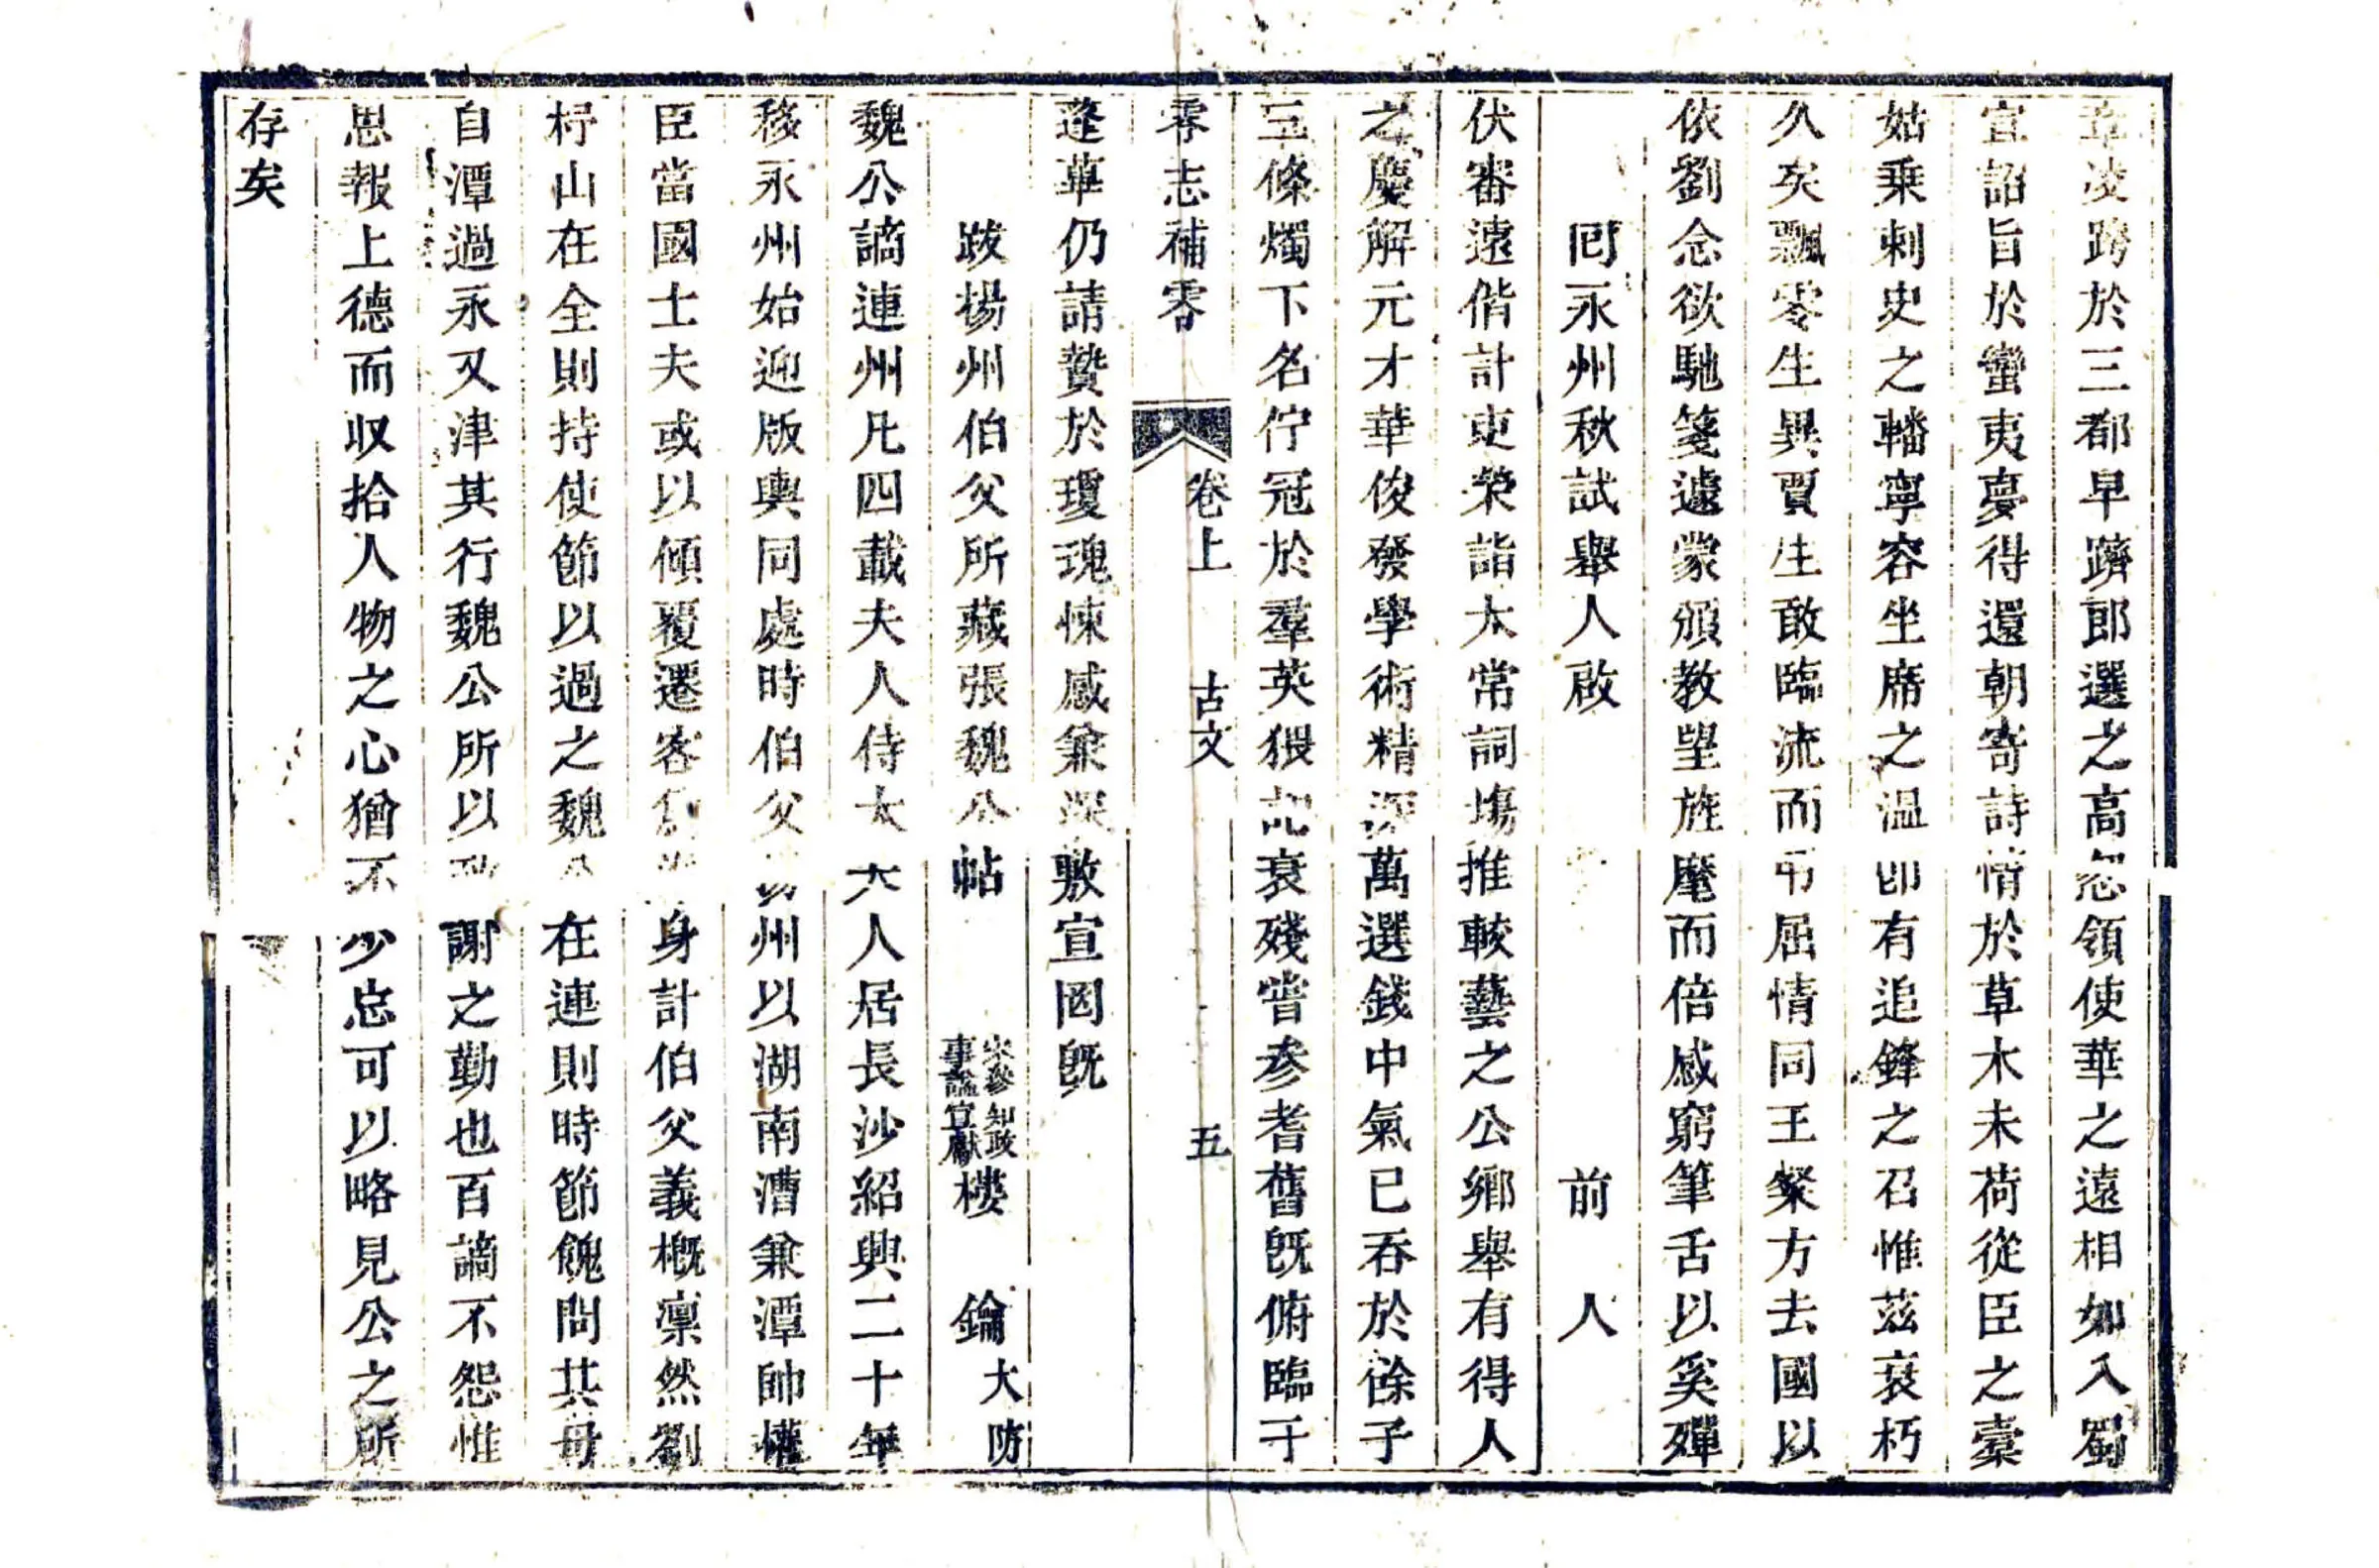 章凌跨於三都早躋郎選之高忽領使華之遠相如入蜀
宣詔旨於蠻夷夢得還朝寄詩情於草木未荷從臣之橐
姑乗刺史之轓寧容坐席之温即有追鋒之召惟茲衰朽
久矣飄零生異賈生敢臨流而弔屈情同王粲方去國以
依劉念欲馳箋遽蒙頒教望旌麾而倍感窮筆舌以奚殫
囘永州秋試舉人啟 前人
伏審遠偕計吏榮詣太常詞塲推較藝之公鄉舉有得人
之慶解元才華俊發學術精深萬選錢中氣已吞於餘子
三條燭下名佇冠於羣英猥記衰殘嘗参耆舊旣俯臨于
零志補零 卷上 古文 五
蓬蓽仍請贄於瓊瑰悚感兼深敷宣罔旣
跋揚州伯父所藏張魏公帖 宋參知政事諡宣獻樓鑰大防
魏公謫連州凡四載夫人侍太夫人居長沙紹興二十年
移永州始迎版輿同處時伯父 州以湖南漕兼潭帥權
臣當國士夫或以傾覆遷客爲 身計伯父義概凛然劉
杼山在全則持使節以過之魏公在連則時節餽問其母
自潭過永又津其行魏公所以 謝之勤也百謫不怨惟
思報上德而収拾人物之心猶不少忘可以略見公之所
存矣